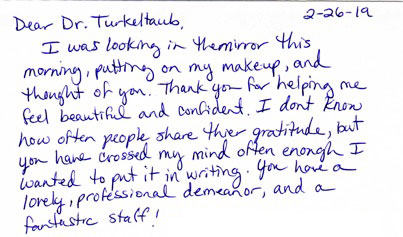 Dear Dr. Turkeltaub, 2-26-19
I was looking in themirror this
morning, putting on my makeup, and
thought of you. Thank you for helping me
feel beautiful and confident. I dont know
how often people share thier gratitude, but
you have crossed my mind often enough I
wanted to put it in writing. You have a
lovely, professional demeanor, and a
fantastic staff!